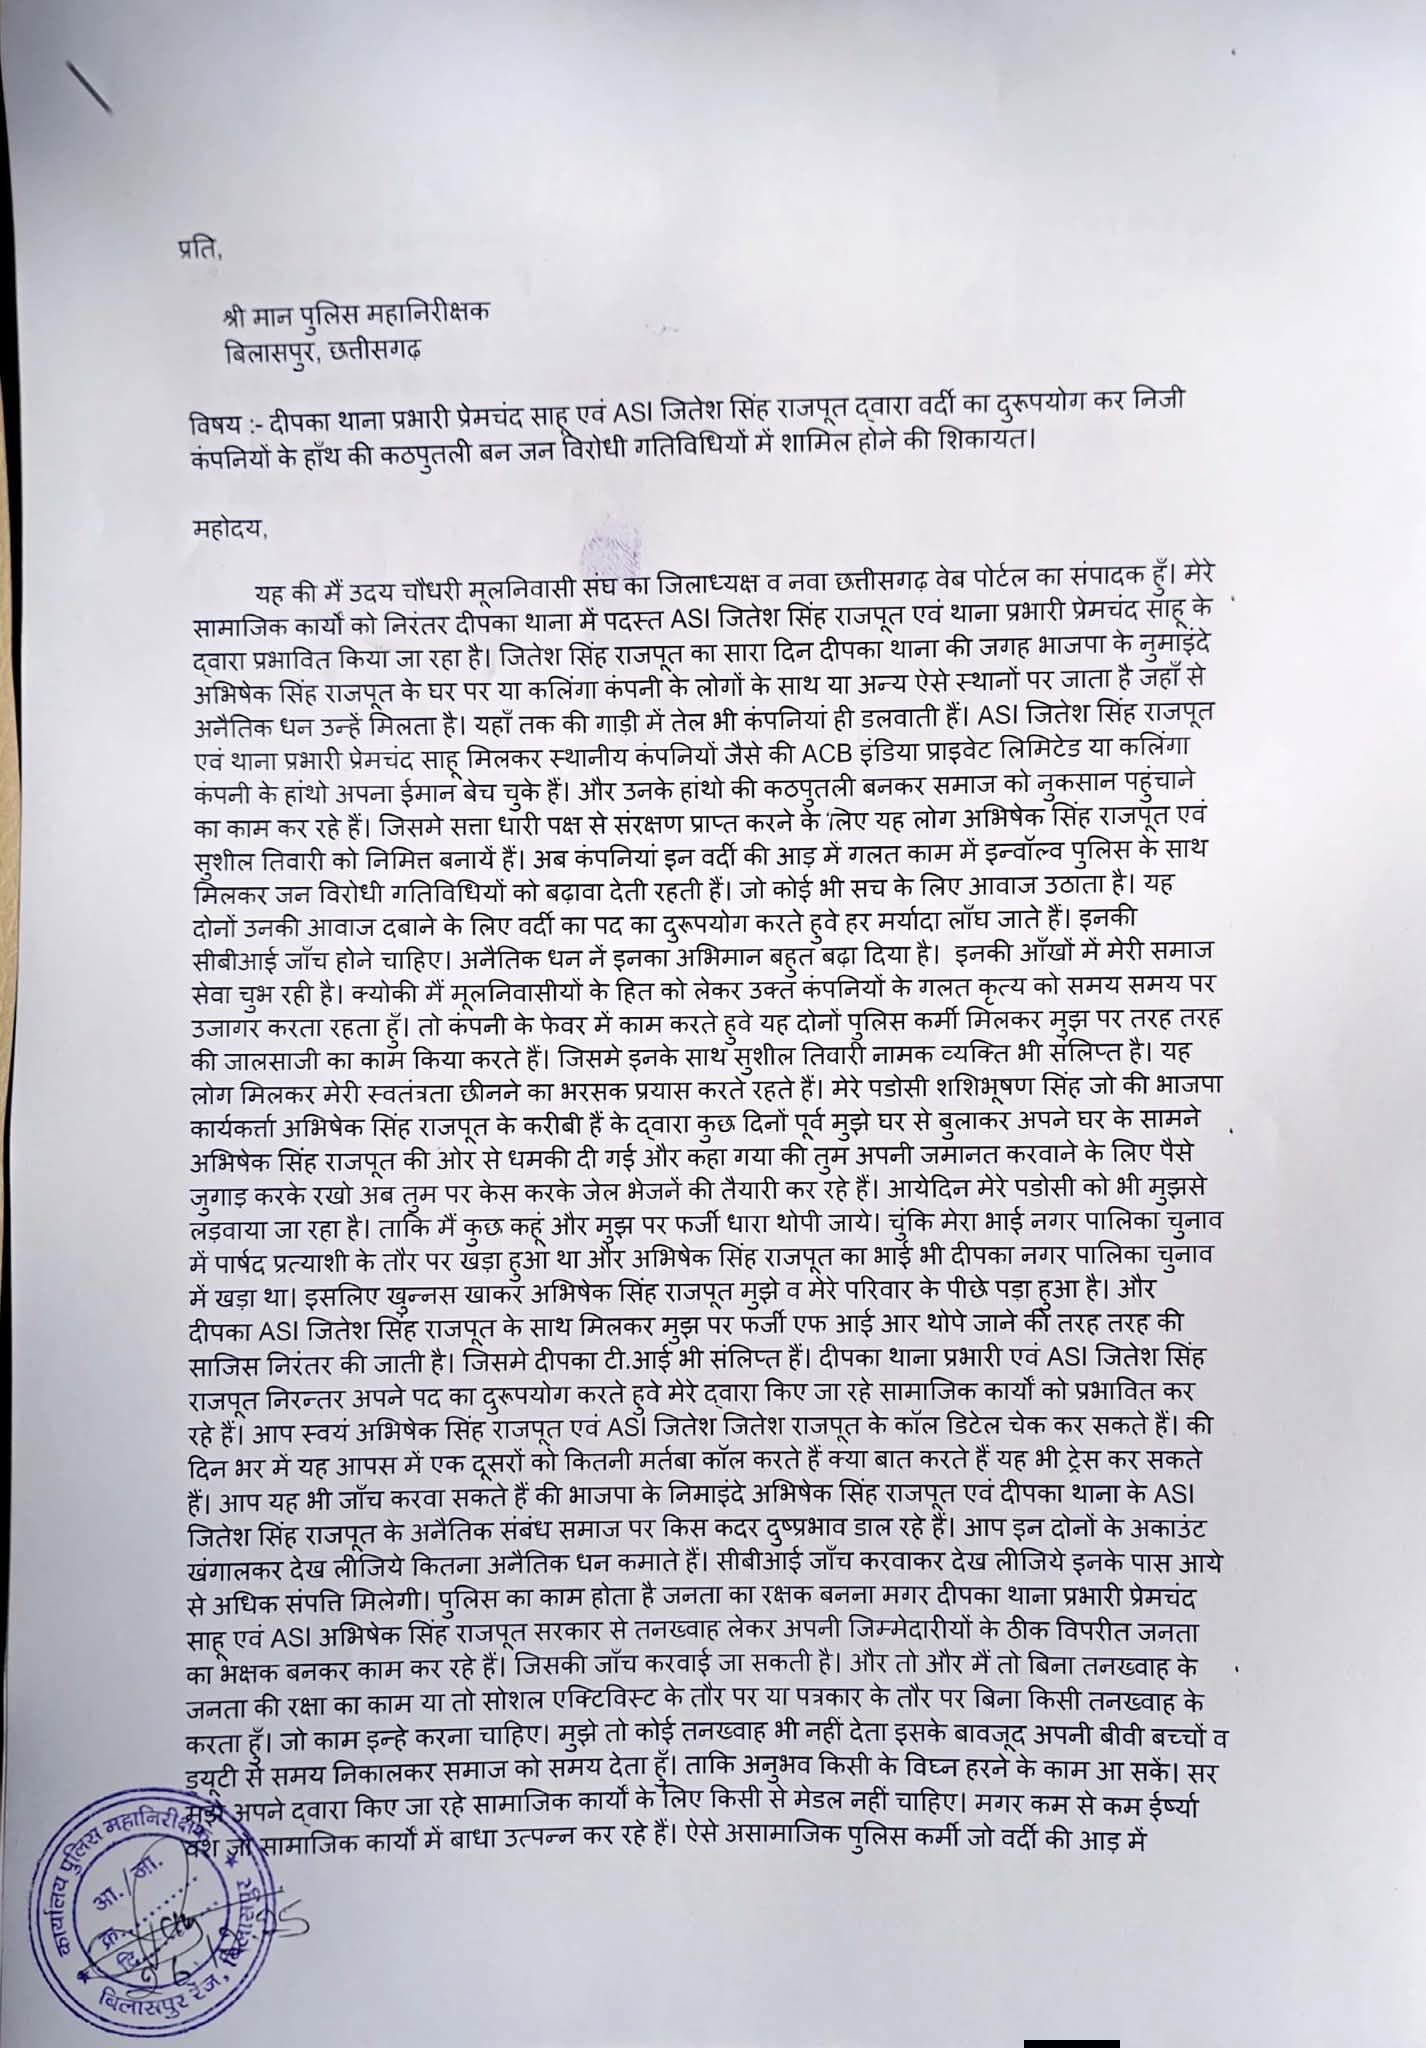 प्रति,
श्री मान पुलिस महानिरीक्षक
बिलासपुर, छत्तीसगढ़
विषय :- दीपका थाना प्रभारी प्रेमचंद साहू एवं ASI जितेश सिंह राजपूत द्वारा वर्दी का दुरूपयोग कर निजी
कंपनियों के हाँथ की कठपुतली बन जन विरोधी गतिविधियों में शामिल होने की शिकायत।
महोदय,
यह की मैं उदय चौधरी मूलनिवासी संघ का जिलाध्यक्ष व नवा छत्तीसगढ़ वेब पोर्टल का संपादक हूँ। मेरे
सामाजिक कार्यों को निरंतर दीपका थाना में पदस्त ASI जितेश सिंह राजपूत एवं थाना प्रभारी प्रेमचंद साहू के
द्वारा प्रभावित किया जा रहा है। जितेश सिंह राजपूत का सारा दिन दीपका थाना की जगह भाजपा के नुमाइंदे
अभिषेक सिंह राजपूत के घर पर या कलिंगा कंपनी के लोगों के साथ या अन्य ऐसे स्थानों पर जाता है जहाँ से
अनैतिक धन उन्हें मिलता है। यहाँ तक की गाड़ी में तेल भी कंपनियां ही डलवाती हैं। ASI जितेश सिंह राजपूत
एवं थाना प्रभारी प्रेमचंद साहू मिलकर स्थानीय कंपनियों जैसे की ACB इंडिया प्राइवेट लिमिटेड या कलिंगा
कंपनी के हांथो अपना ईमान बेच चुके हैं। और उनके हांथो की कठपुतली बनकर समाज को नुकसान पहुंचाने
का काम कर रहे हैं। जिसमे सत्ता धारी पक्ष से संरक्षण प्राप्त करने के लिए यह लोग अभिषेक सिंह राजपूत एवं
सुशील तिवारी को निमित्त बनायें हैं। अब कंपनियां इन वर्दी की आड़ में गलत काम में इन्वॉल्व पुलिस के साथ
मिलकर जन विरोधी गतिविधियों को बढ़ावा देती रहती हैं। जो कोई भी सच के लिए आवाज उठाता है। यह
दोनों उनकी आवाज दबाने के लिए वर्दी का पद का दुरूपयोग करते हुवे हर मर्यादा लाँघ जाते हैं। इनकी
सीबीआई जाँच होने चाहिए। अनैतिक धन नें इनका अभिमान बहुत बढ़ा दिया है। इनकी आँखों में मेरी समाज
सेवा चुभ रही है। क्योकी मैं मूलनिवासीयों के हित को लेकर उक्त कंपनियों के गलत कृत्य को समय समय पर
उजागर करता रहता हूँ। तो कंपनी के फेवर में काम करते हुवे यह दोनों पुलिस कर्मी मिलकर मुझ पर तरह तरह
की जालसाजी का काम किया करते हैं। जिसमे इनके साथ सुशील तिवारी नामक व्यक्ति भी संलिप्त है। यह
लोग मिलकर मेरी स्वतंत्रता छीनने का भरसक प्रयास करते रहते हैं। मेरे पडोसी शशिभूषण सिंह जो की भाजपा
कार्यकर्त्ता अभिषेक सिंह राजपूत के करीबी हैं के द्वारा कुछ दिनों पूर्व मुझे घर से बुलाकर अपने घर के सामने
अभिषेक सिंह राजपूत की ओर से धमकी दी गई और कहा गया की तुम अपनी जमानत करवाने के लिए पैसे
जुगाड़ करके रखो अब तुम पर केस करके जेल भेजनें की तैयारी कर रहे हैं। आयेदिन मेरे पडोसी को भी मुझसे
लड़वाया जा रहा है। ताकि मैं कुछ कहूं और मुझ पर फर्जी धारा थोपी जाये। चुंकि मेरा भाई नगर पालिका चुनाव
में पार्षद प्रत्याशी के तौर पर खड़ा हुआ था और अभिषेक सिंह राजपूत का भाई भी दीपका नगर पालिका चुनाव
में खड़ा था। इसलिए खुन्नस खाकर अभिषेक सिंह राजपूत मुझे व मेरे परिवार के पीछे पड़ा हुआ है। और
दीपका ASI जितेश सिंह राजपूत के साथ मिलकर मुझ पर फर्जी एफ आई आर थोपे जाने की तरह तरह की
साजिस निरंतर की जाती है। जिसमे दीपका टी.आई भी संलिप्त हैं। दीपका थाना प्रभारी एवं ASI जितेश सिंह
राजपूत निरन्तर अपने पद का दुरूपयोग करते हुवे मेरे द्वारा किए जा रहे सामाजिक कार्यों को प्रभावित कर
रहे हैं। आप स्वयं अभिषेक सिंह राजपूत एवं ASI जितेश जितेश राजपूत के कॉल डिटेल चेक कर सकते हैं। की
दिन भर में यह आपस में एक दूसरों को कितनी मर्तबा कॉल करते हैं क्या बात करते हैं यह भी ट्रेस कर सकते
हैं। आप यह भी जाँच करवा सकते हैं की भाजपा के निमाइंदे अभिषेक सिंह राजपूत एवं दीपका थाना के ASI
जितेश सिंह राजपूत के अनैतिक संबंध समाज पर किस कदर दुष्प्रभाव डाल रहे हैं। आप इन दोनों के अकाउंट
खंगालकर देख लीजिये कितना अनैतिक धन कमाते हैं। सीबीआई जाँच करवाकर देख लीजिये इनके पास आये
से अधिक संपत्ति मिलेगी। पुलिस का काम होता है जनता का रक्षक बनना मगर दीपका थाना प्रभारी प्रेमचंद
साहू एवं ASI अभिषेक सिंह राजपूत सरकार से तनख्वाह लेकर अपनी जिम्मेदारीयों के ठीक विपरीत जनता
का भक्षक बनकर काम कर रहे हैं। जिसकी जाँच करवाई जा सकती है। और तो और मैं तो बिना तनख्वाह के
जनता की रक्षा का काम या तो सोशल एक्टिविस्ट के तौर पर या पत्रकार के तौर पर बिना किसी तनख्वाह के
करता हूँ। जो काम इन्हे करना चाहिए। मुझे तो कोई तनख्वाह भी नहीं देता इसके बावजूद अपनी बीवी बच्चों व
ड्यूटी से समय निकालकर समाज को समय देता हूँ। ताकि अनुभव किसी के विघ्न हरने के काम आ सकें। सर
मुझे अपने द्वारा किए जा रहे सामाजिक कार्यों के लिए किसी से मेडल नहीं चाहिए। मगर कम से कम ईर्ष्या
वश जो सामाजिक कार्यों में बाधा उत्पन्न कर रहे हैं। ऐसे असामाजिक पुलिस कर्मी जो वर्दी की आड़ में
कार्यालय पुलिस महानिरीक्षक
आ./जा.
क्र.
दि.
बिलासपुर रेंज, बिलासपुर